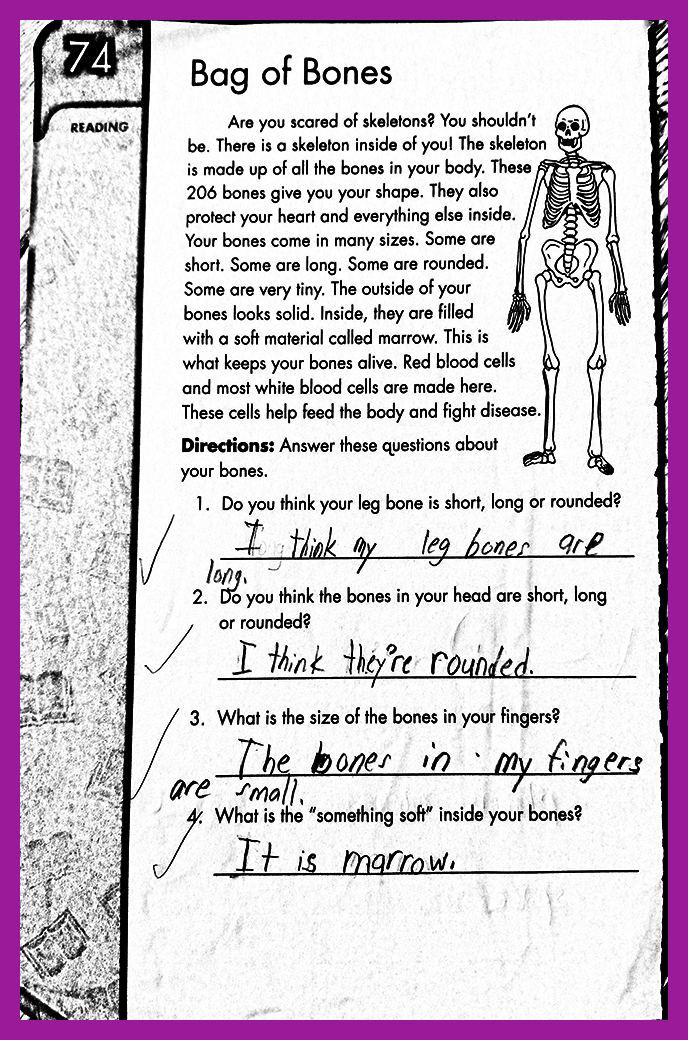 74
READING
Bag of Bones
Are you scared of skeletons? You shouldn't
be. There is a skeleton inside of you! The skeleton
is made up of all the bones in your body. These
206 bones give you your shape. They also
protect your heart and everything else inside.
Your bones come in many sizes. Some are
short. Some are long. Some are rounded.
Some are very tiny. The outside of your
bones looks solid. Inside, they are filled
with a soft material called marrow. This is
what keeps your bones alive. Red blood cells
and most white blood cells are made here.
These cells help feed the body and fight disease.
Directions: Answer these questions about
your bones.
1. Do you think your leg bone is short, long or rounded?
I think my leg bones are
long.
2. Do you think the bones in your head are short, long
or rounded?
I think they're rounded.
3. What is the size of the bones in your fingers?
The bones in my fingers
are small.
4. What is the "something soft" inside your bones?
It is marrow.